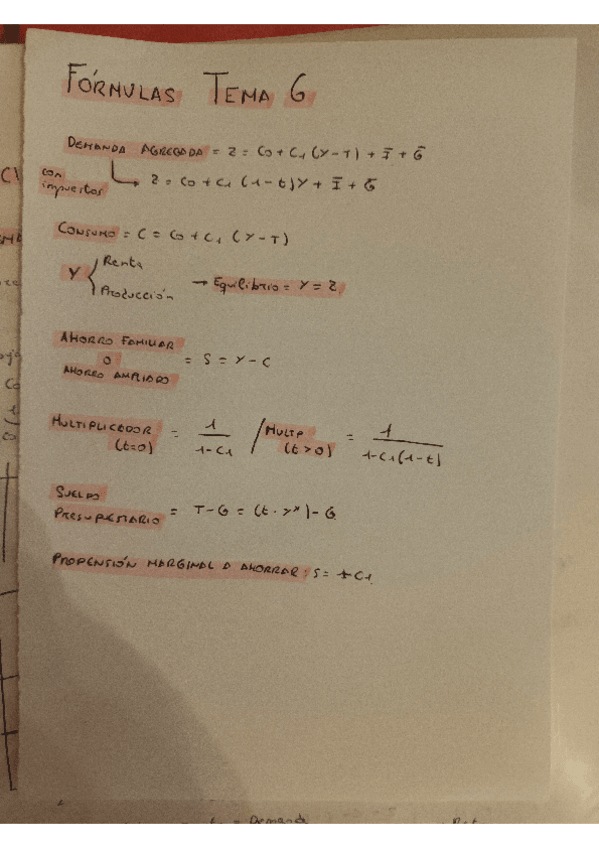 FÓRMULAS TEMA 6
DEMANDA AGREGADA = Z = C0 + C1 (Y-T) + Ī + Ḡ
con impuestos
Z = C0 + C1 (1-t)Y + Ī + Ḡ
CONSUMO = C = C0 + C1 (Y-T)
Y { Renta
Producción
→ Equilibrio = Y = Z
AHORRO FAMILIAR
O
AHORRO AMPLIADO
= S = Y - C
MULTIPLICADOR (t=0) = 1 / 1-C1 / MULTP (t>0) = 1 / 1-C1(1-t)
SUELDO
PRESUPUESTARIO = T-G = (t · Y*) - G
PROPENSIÓN MARGINAL A AHORRAR: S =
Demanda